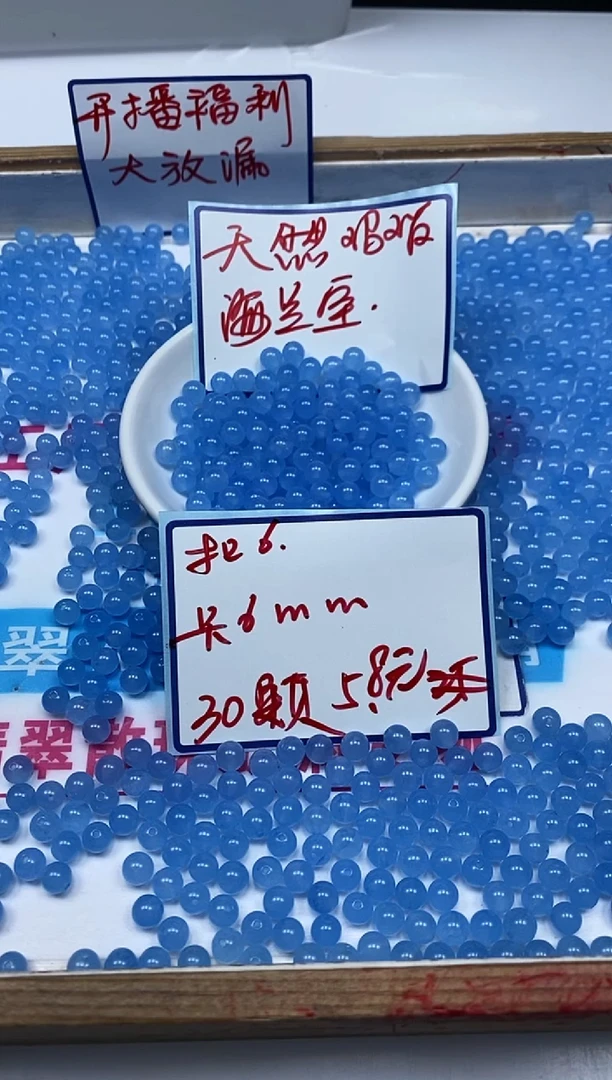 开播福利
大放漏
天然
海兰宝.
扣6.
长6mm
30颗5.8元
翠
翡翠散珠